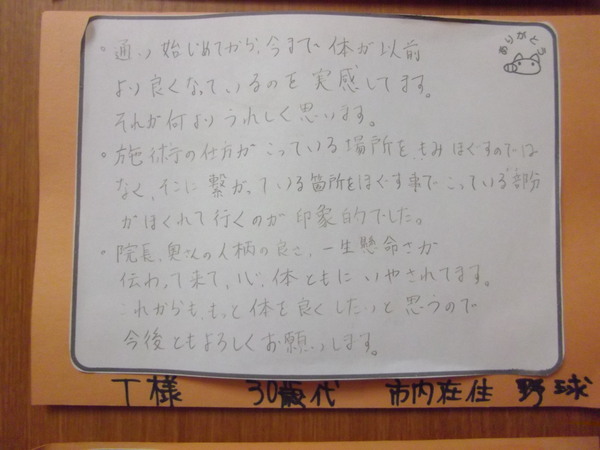 ありがとう
・通い始じめてから、今まで、体が以前
より良くなっているのを実感してます。
それが何よりうれしく思います。
・施術の仕方がこっている場所を、もみほぐすのでは
なく、そこに繋がっている箇所をほぐす事でこっている部分
がほぐれて行くのが印象的でした。
・院長、奥さんの人柄の良さ、一生懸命さが
伝わって来て、心、体ともにいやされてます。
これからも、もっと体を良くしたいと思うので
今後ともよろしくお願いします。
T様 30歳代 市内在住 野球